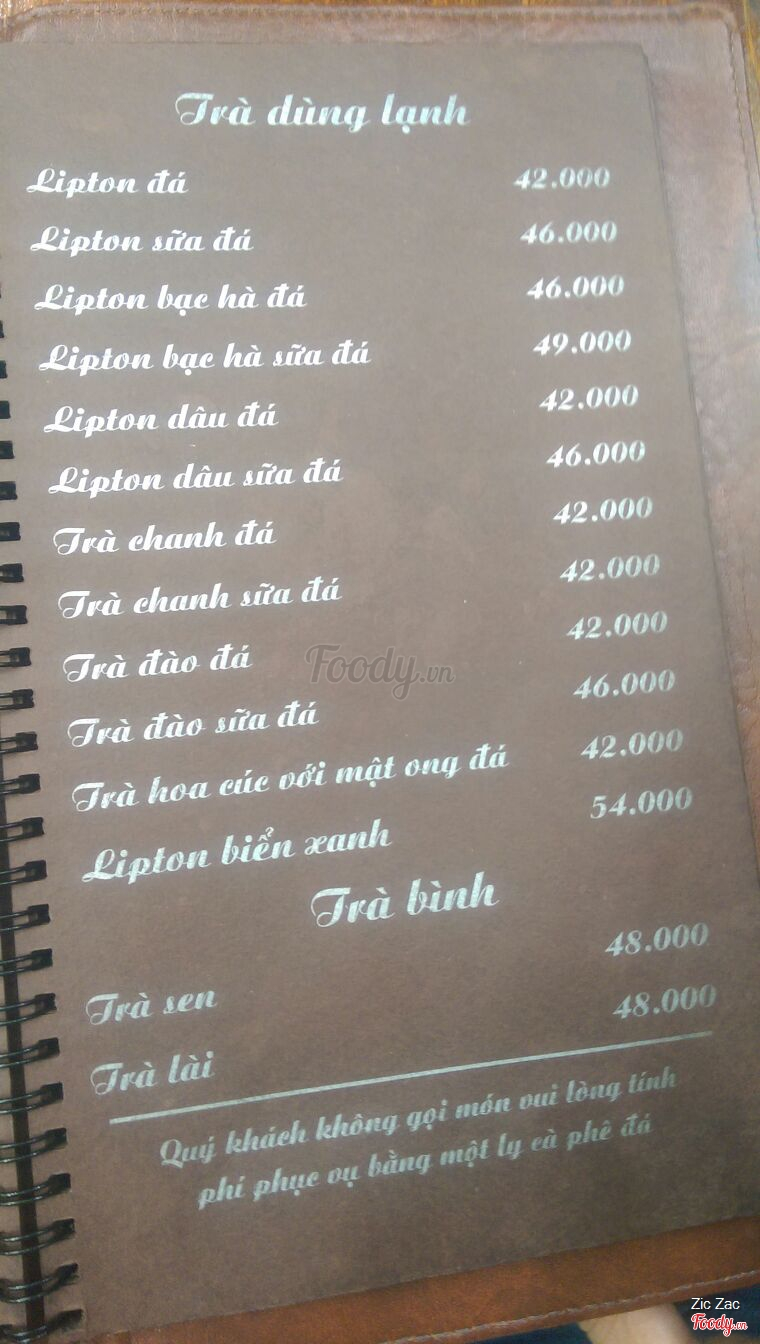 Trà dùng lạnh
Lipton đá 42.000
Lipton sữa đá 46.000
Lipton bạc hà đá 46.000
Lipton bạc hà sữa đá 49.000
Lipton dâu đá 42.000
Lipton dâu sữa đá 46.000
Trà chanh đá 42.000
Trà chanh sữa đá 42.000
Trà đào đá 42.000
Trà đào sữa đá 46.000
Trà hoa cúc với mật ong đá 42.000
Lipton biển xanh 54.000
Trà bình
Trà sen 48.000
Trà lài 48.000
Quý khách không gọi món vui lòng tính
phí phục vụ bằng một ly cà phê đá
Foody.vn
Zic Zac
Foody.vn